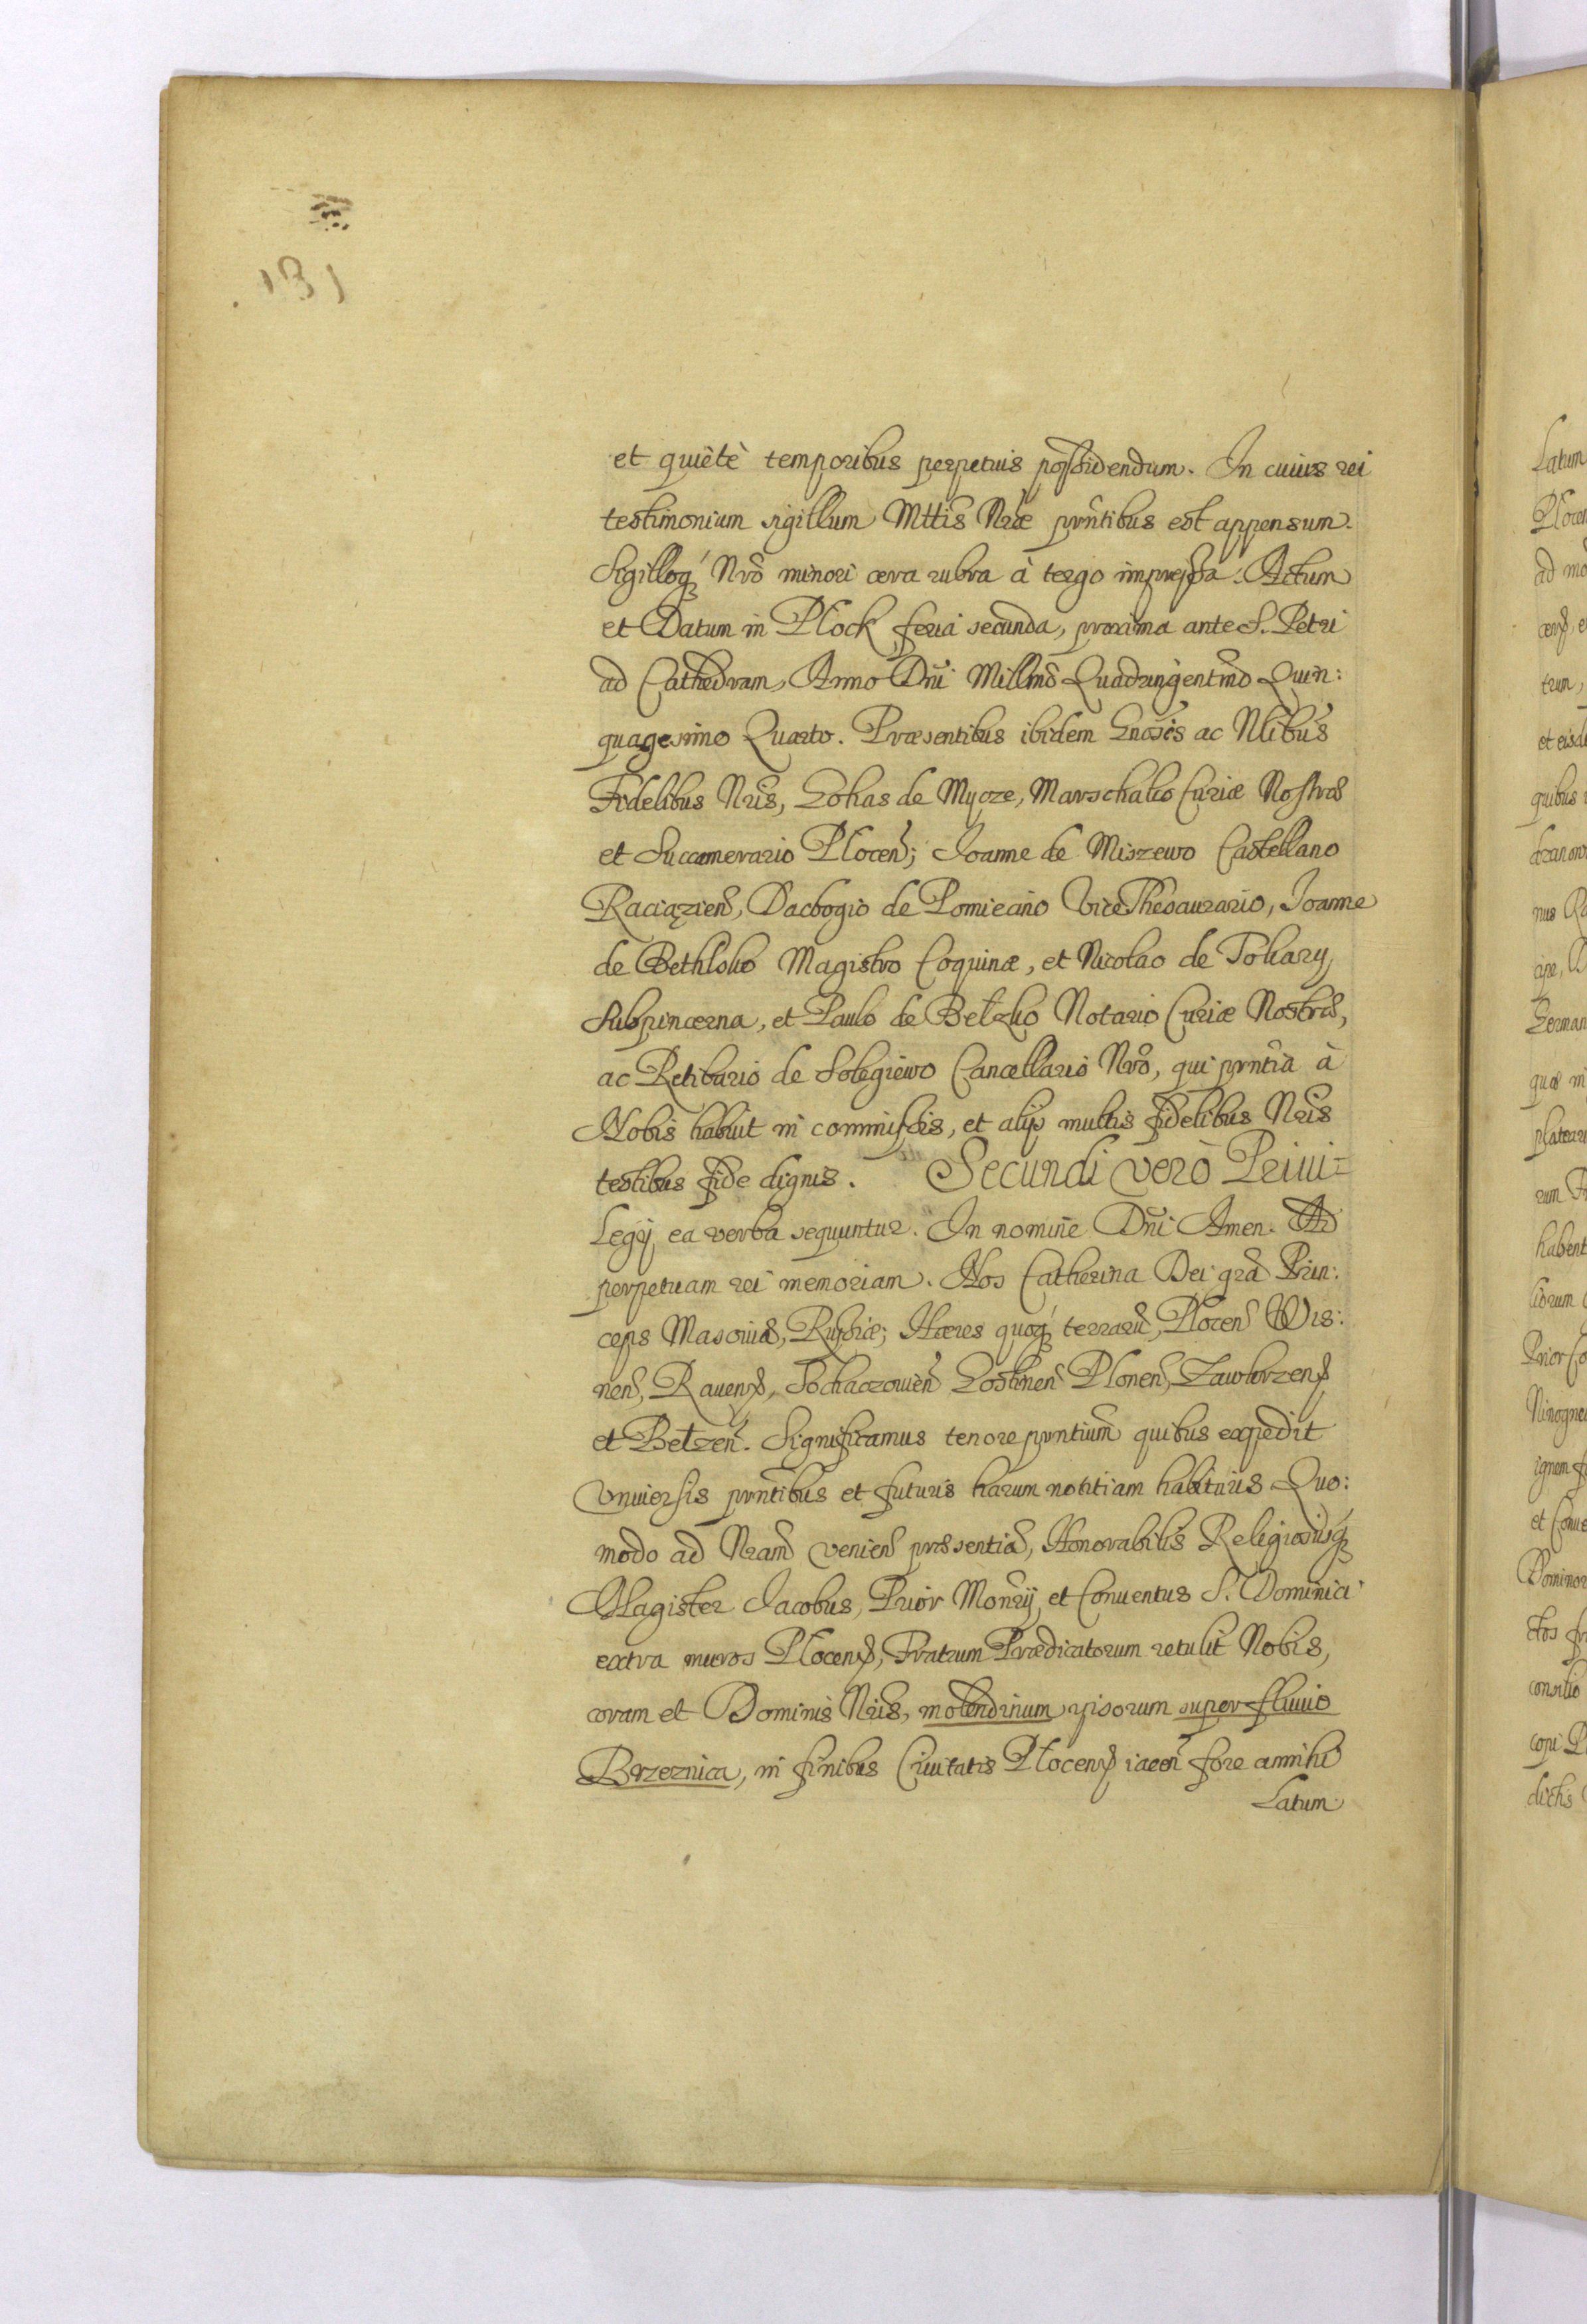 et quietè temporibus perpetuis possidendum. In cuius rei
testimonium sigillum Mttis Nrae pnntibus est appensum.
Sigilloq́ Nrõ minori cera rubra à tergo impressa. Actum
et Datum in Plock feria secunda, proxima ante S. Petri
ad Cathedram, Anno Dni Millmõ Quadringentmõ Quin:
quagesimo Quarto. Præsentibus ibidem Gnosis ac Nlibus
Fidelibus Nris, Gotkas de Mycze, Marschalco Curiæ Nostræ
et Succamerario Plocen; Joanne de Miszewo Castellano
Raciązien, Dacbogio de Pomiecino ViceThesaurario, Joanne
de Bethlsko Magistro Coquinæ, et Nicolao de Tokary
Subpincerna, et Paulo de Betzko Notario Curiæ Nostræ,
ac Retibario de Golegiewo Cancellario Nrõ, qui pnntia à
Nobis habuit in commissis, et alijs multis fidelibus Nris
testibus fide dignis. Secundi verò Priui=
Legij ea verba sequuntur. In nomine Dni Amen. Ad
perpetuam rei memoriam. Nos Catherina Dei gra Prin:
ceps Masouiæ, Russiæ; Hæres quoq́ terrarũ, Plocen Wis:
nen, Rauens, Sochaczouien Gostinen Plonen, Zawkrzens
et Betzen. Significamus tenore pnntium quibus expedit
Vniuersis pnntibus et futuris harum notitiam habituris Quo:
modo ad Nram veniens præsentia, Honorabilis Religiosusq́
Magister Jacobus, Prior Monrij et Conuentus S. Dominici
extra muros Plocens, Fratrum Prædicatorum retulit Nobis,
coram et Dominis Nris, molendinum ipsorum super fluuio
Brzeznica, in finibus Ciuitatis Plocens iacen fore annihi
Latum